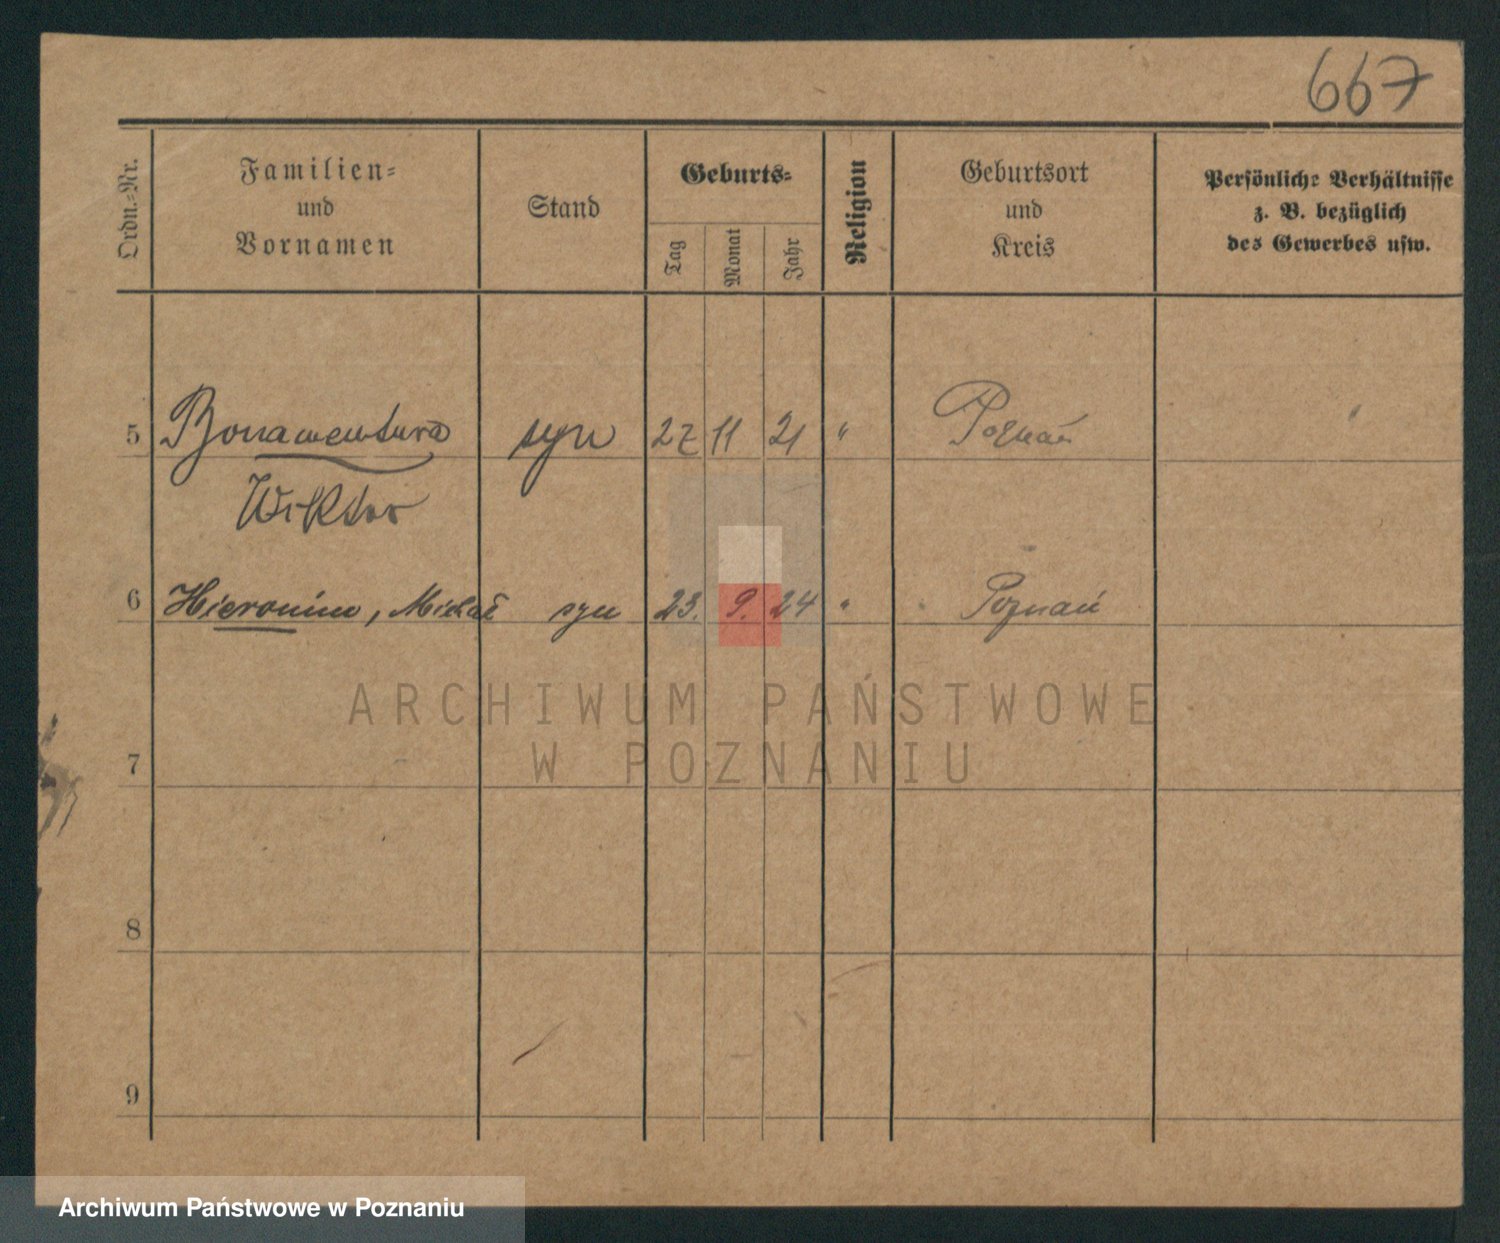 667
Ordn.-Nr.
Familien-
und
Vornamen
Stand
Geburts-
Tag
Monat
Jahr
Religion
Geburtsort
und
Kreis
Persönliche Verhältnisse
z. B. bezüglich
des Gewerbes usw.
5 Bonawentura syn 27 11 21 " Poznań "
Wiktor
6 Hieronim, Michał syn 23. 9. 24 " Poznań
ARCHIWUM PAŃSTWOWE
W POZNANIU
7
8
9
Archiwum Państwowe w Poznaniu